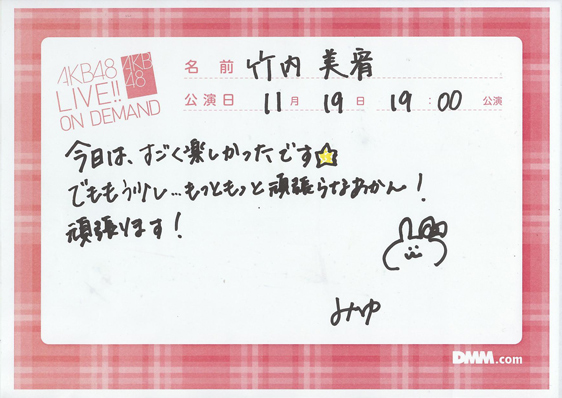 AKB48
LIVE!!
ON DEMAND
AKB
48
名前 竹内 美宥
公演日 11月 19日 19:00 公演
今日は、すごく楽しかったです☆
でももう少し...もっともっと頑張らなあかん!
頑張ります!
みゆ
DMM.com